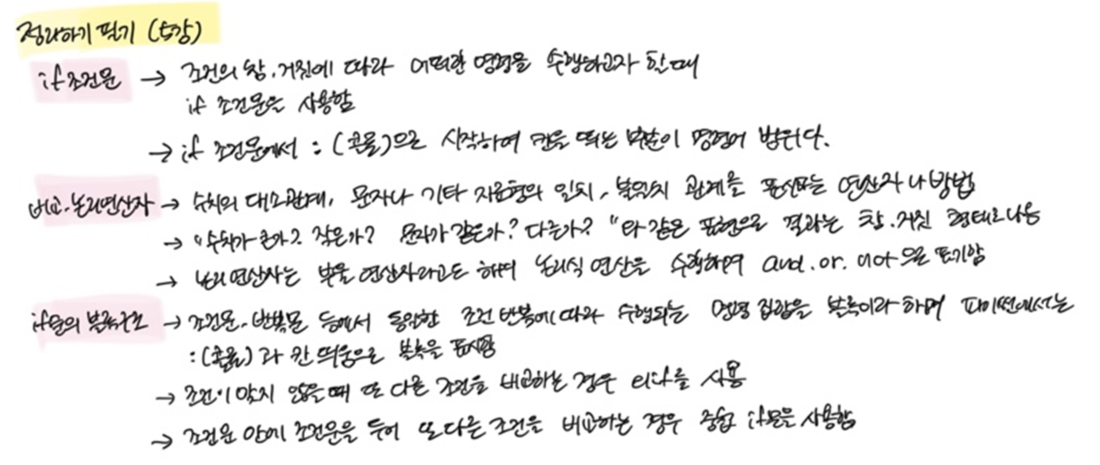 정리하기 필기 (5강)
if 조건문 → 조건의 참.거짓에 따라 어떠한 명령을 수행하고자 할 때
if 조건문을 사용함
→ if 조건문에서 : (콜론)으로 시작하여 칸을 띄는 부분이 명령어 범위다.
비교.논리연산자 → 수치의 대소관계, 문자나 기타 자료형의 일치, 불일치 관계를 표현하는 연산자나 방법
→ "수치가 큰가? 작은가? 문자가 같은가? 다른가?"와 같은 표현으로 결과는 참.거짓 형태로 나옴
→ 논리연산자는 부울 연산자라고도 하며 논리식 연산을 수행하며 and.or.not으로 표기함
if문의 블록구조 → 조건문.반복문 등에서 동일한 조건 반복에 따라 수행되는 명령 집합을 블록이라 하며 파이썬에서는
:(콜론)과 칸 띄움으로 블록을 표시함
→ 조건이 맞지 않을 때 또 다른 조건을 비교하는 경우 elif를 사용
→ 조건문 안에 조건문을 두어 또 다른 조건을 비교하는 경우 중첩 if문을 사용함